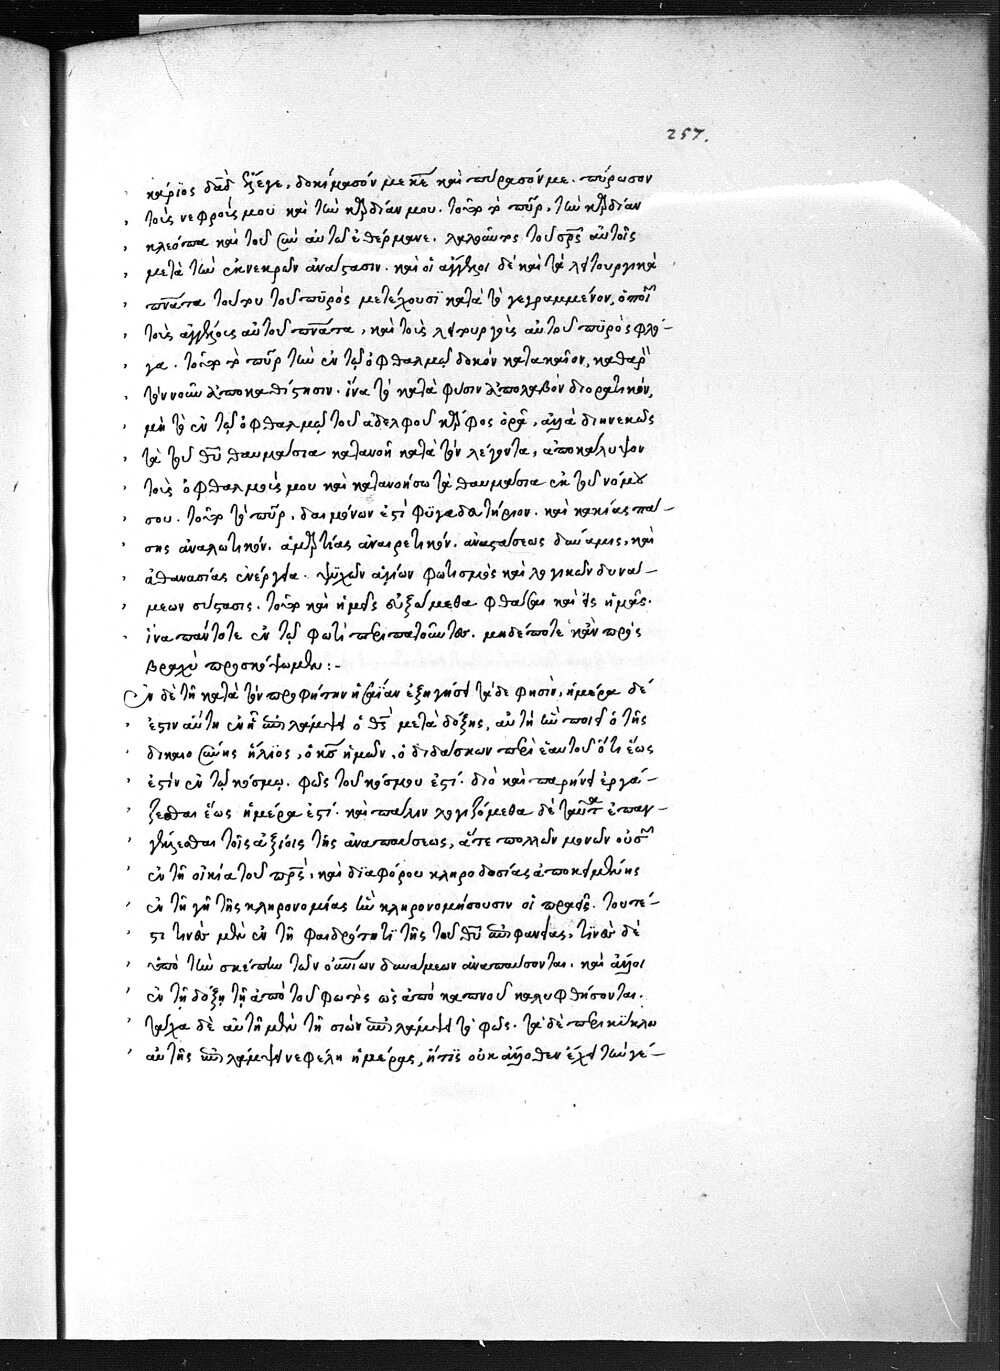 257.
κάριος δᾱδ ἔλεγε, δοκίμασόν με κε̄ καὶ πείρασόν με. πύρωσον
τοὺς νεφρούς μου καὶ τὴν καρδίαν μου. τοῦτο τὸ πῦρ, τὴν καρδίαν
κλεόπα καὶ τοῦ σὺν αὐτῶ ἐθέρμανε. λαλοῦντος τοῦ σρ̄ς αὐτοῖς
μετὰ τὴν ἐκ νεκρῶν ἀνάστασιν. καὶ οἱ ἄγγελοι δὲ καὶ τὰ λειτουργικὰ
πνᾱτα τούτου τοῦ πυρὸς μετέχουσι κατὰ τὸ γεγραμμένον, ὁ ποιῶν
τοὺς ἀγγέλους αὐτοῦ πνᾱτα, καὶ τοὺς λειτουργοὺς αὐτοῦ πυρὸς φλό-
γα. τοῦτο τὸ πῦρ τὴν ἐν τῷ ὀφθαλμῷ δοκὸν κατακαῖον, καθαρὸν
τὸν νοῦν ἀποκαθίστησιν. ἵνα τὸ κατὰ φύσιν ἀπολαβὸν διορατικόν,
μὴ τὸ ἐν τῷ ὀφθαλμῷ τοῦ ἀδελφοῦ κάρφος ὁρᾷ, ἀλλὰ διηνεκῶς
τὰ τοῦ θῡ θαυμάσια κατανοῆ κατὰ τὸν λέγοντα, ἀποκάλυψον
τοὺς ὀφθαλμούς μου καὶ κατανοήσω τὰ θαυμάσια ἐκ τοῦ νόμου
σου. τοῦτο τὸ πῦρ, δαιμόνων ἐστὶ φυγαδευτήριον. καὶ κακίας πά-
σης ἀναλωτικόν. ἁμαρτίας ἀναιρετικόν. ἀναστάσεως δύναμις, καὶ
ἀθανασίας ἐνέργεια. ψυχῶν ἁγίων φωτισμὸς καὶ λογικῶν δυνά-
μεων σύστασις. τοῦτο καὶ ἡμεῖς εὐξώμεθα φθάσαι καὶ εἰς ἡμᾶς.
ἵνα πάντοτε ἐν τῷ φωτὶ περιπατοῦντες. μηδέποτε κἂν πρὸς
βραχὺ προσκόψωμεν:-
Ἐν δὲ τῆ κατὰ τὸν προφήτην ἡσαΐαν ἐξηγήσει τάδε φησίν, ἡμέρα δέ
ἐστιν αὕτη ἐν ᾗ ἐπιλάμψει ὁ θς̄ μετὰ δόξης, αὐτὴν ποιεῖ ὁ τῆς
δικαιοσύνης ἥλιος, ὁ κς̄ ἡμῶν, ὁ διδάσκων περὶ ἑαυτοῦ ὅτι ἕως
ἐστὶν ἐν τῷ κόσμῳ. φῶς τοῦ κόσμου ἐστί. διὸ καὶ παρήνει ἐργά-
ζεσθαι ἕως ἡμέρα ἐστί. καὶ πάλιν λογιζόμεθα δὲ ταῦτα ἐπαγ-
γέλλεσθαι τοῖς ἀξίοις τῆς ἀναπαύσεως, ἅτε πολλῶν μονῶν οὐσῶν
ἐν τῆ οἰκία τοῦ πρ̄ς, καὶ διαφόρου κληροδοσίας ἀποκειμένης
ἐν τῆ γῆ τῆς κληρονομίας ἣν κληρονομήσουσιν οἱ πραεῖς. τουτέ-
στι τινὰς μὲν ἐν τῆ φαιδρότητι τῆς τοῦ θῡ ἐπιφανείας, τινὰς δὲ
ὑπὸ τὴν σκέπην τῶν οὐνίων δυνάμεων ἀναπαύσονται. καὶ ἄλλοι
ἐν τῇ δόξῃ τῇ ἀπὸ τοῦ φωτὸς ὡς ἀπὸ καπνοῦ καλυφθήσονται.
τάχα δὲ αὐτῆ μὲν τῆ σιὼν ἐπιλάμψει τὸ φῶς. τὰ δὲ περικύκλω
αὐτῆς ἐπιλάμψει νεφέλη ἡμέρας, ἥτις οὐκ ἄλλοθεν ἔχει τὴν γέ-